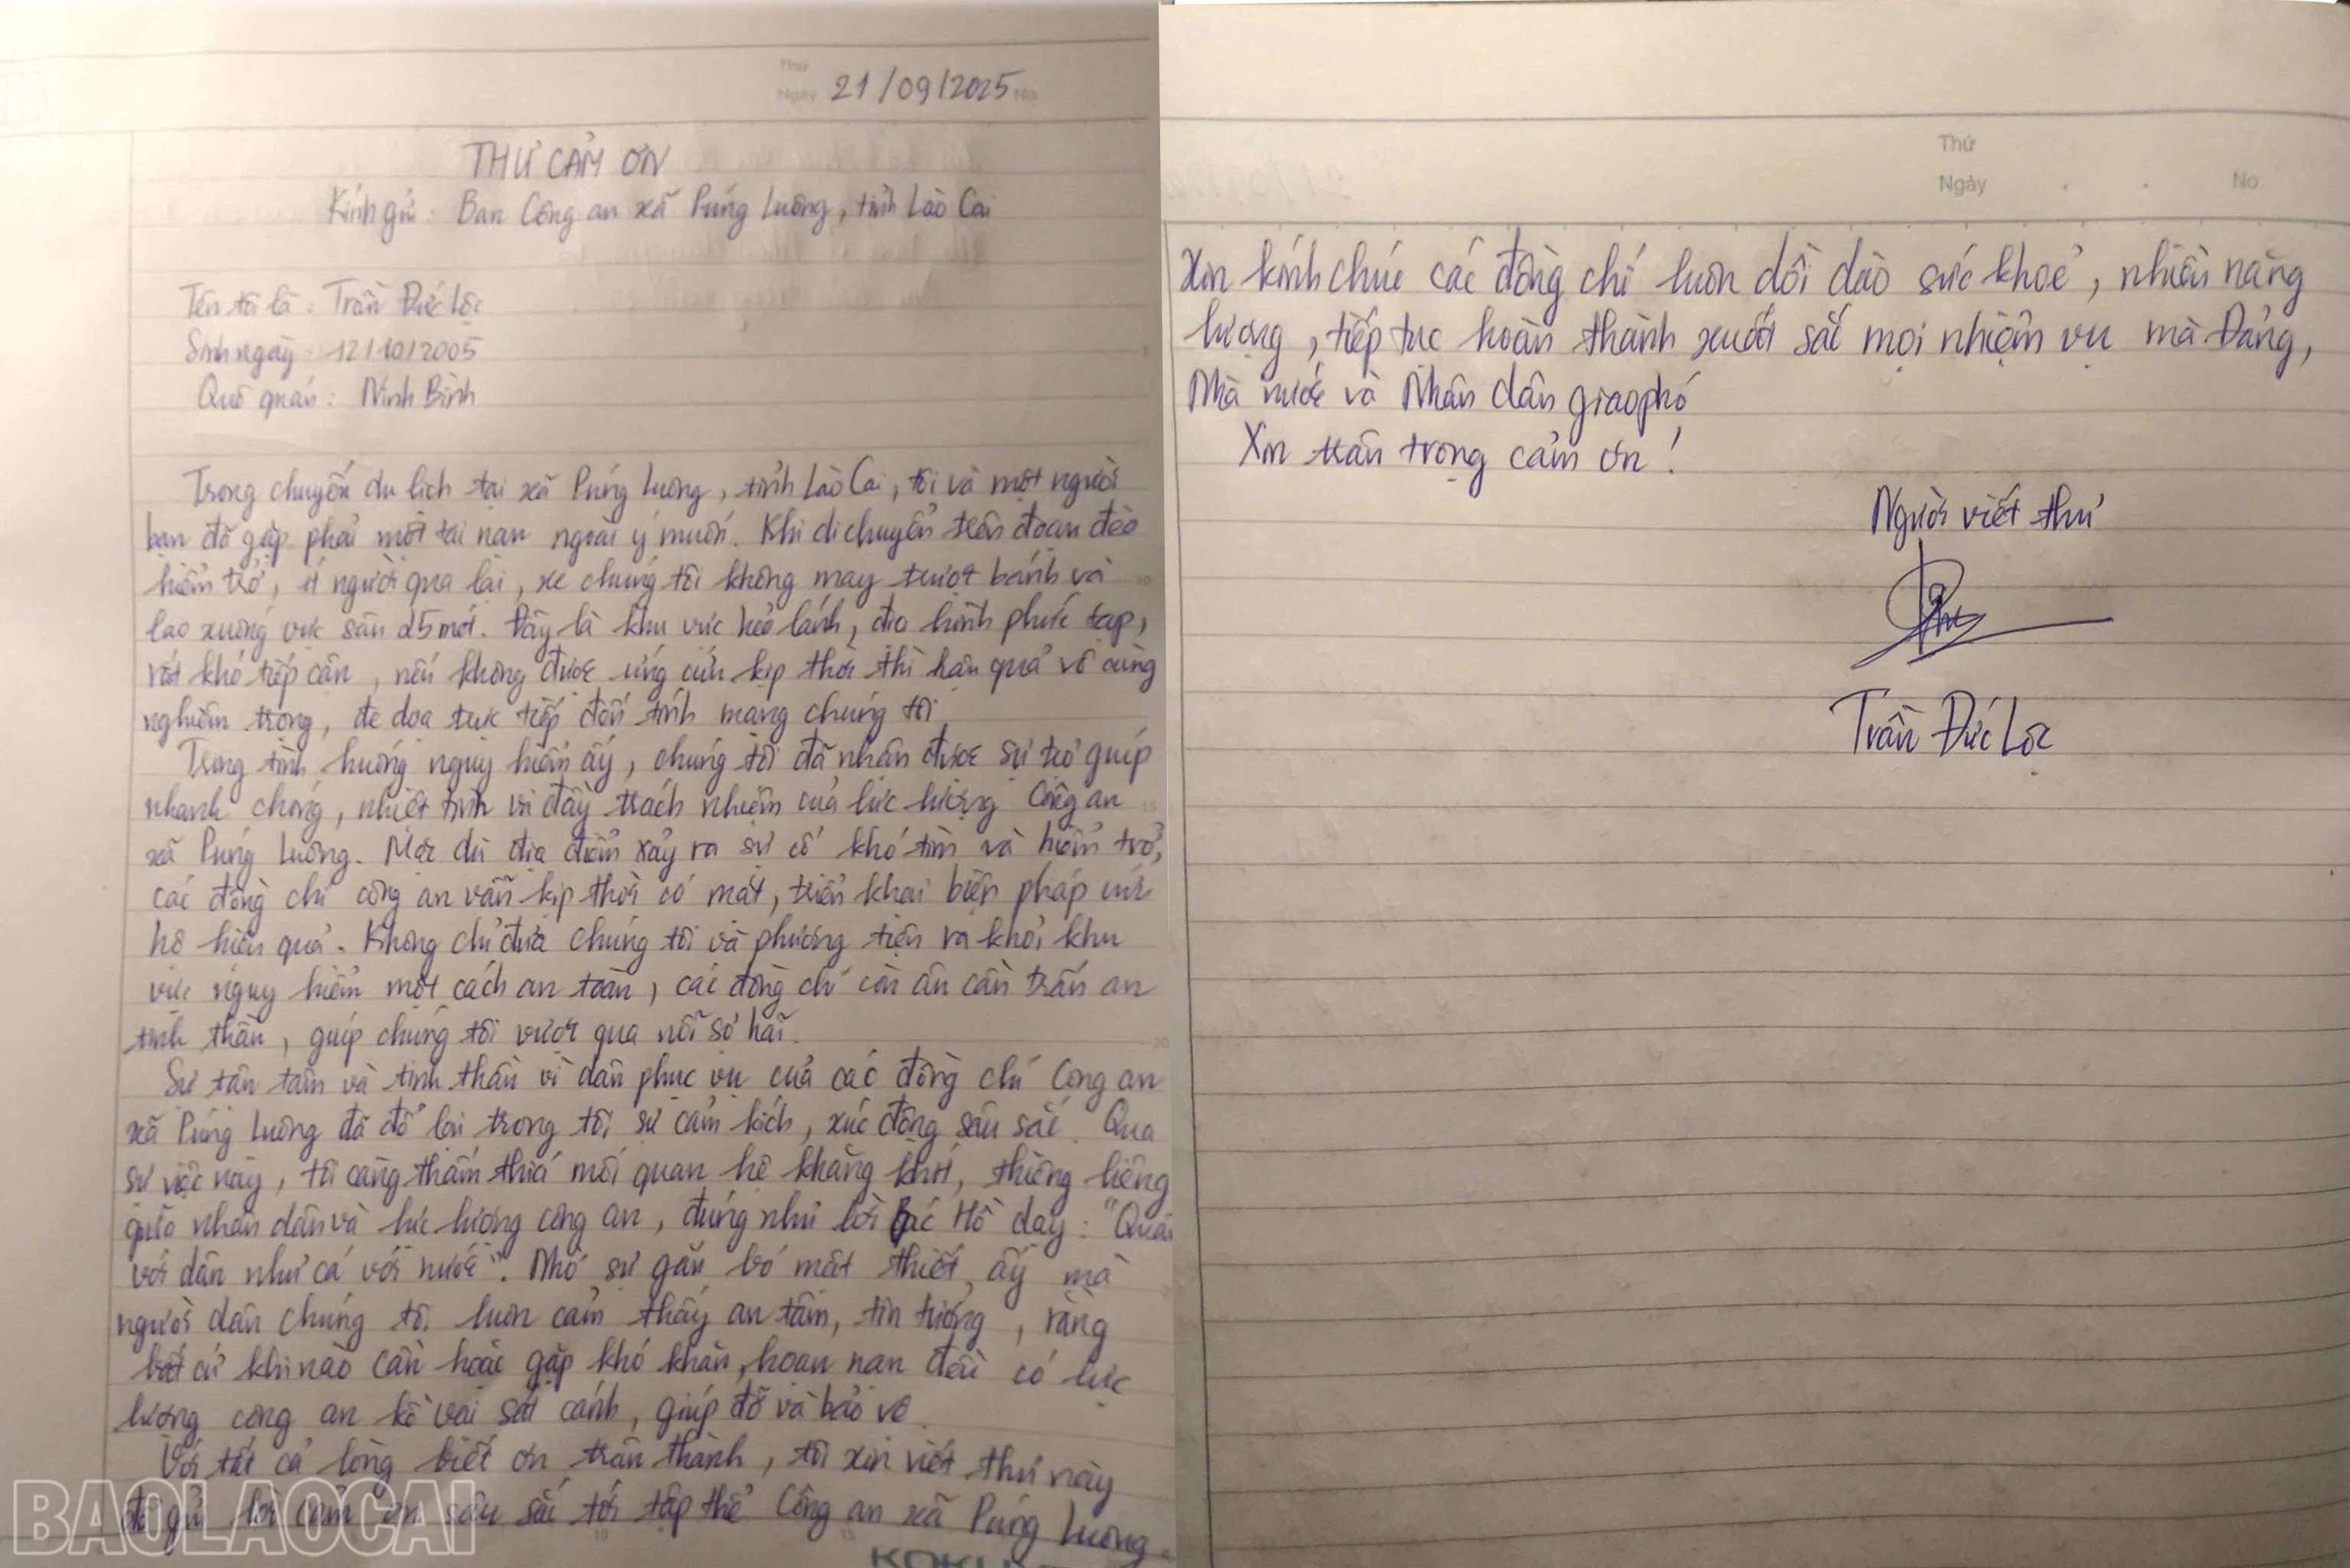 Thứ
Ngày 21/09/2025 No.
THƯ CẢM ƠN
Kính gửi: Ban Công an xã Púng Luông, tỉnh Lào Cai
Tên tôi là: Trần Đức Lộc
Sinh ngày: 12/10/2005
Quê quán: Ninh Bình
Trong chuyến du lịch tại xã Púng Luông, tỉnh Lào Cai, tôi và một người
bạn đã gặp phải một tai nạn ngoài ý muốn. Khi di chuyển trên đoạn đèo
hiểm trở, ít người qua lại, xe chúng tôi không may trượt bánh và
lao xuống vực sâu 25 mét. Đây là khu vực hẻo lánh, địa hình phức tạp,
rất khó tiếp cận, nếu không được ứng cứu kịp thời thì hậu quả vô cùng
nghiêm trọng, đe dọa trực tiếp đến tính mạng chúng tôi.
Trong tình huống nguy hiểm ấy, chúng tôi đã nhận được sự trợ giúp
nhanh chóng, nhiệt tình và đầy trách nhiệm của lực lượng Công an
xã Púng Luông. Mặc dù địa điểm xảy ra sự cố khó tìm và hiểm trở,
các đồng chí công an vẫn kịp thời có mặt, triển khai biện pháp cứu
hộ hiệu quả. Không chỉ đưa chúng tôi và phương tiện ra khỏi khu
vực nguy hiểm một cách an toàn, các đồng chí còn ân cần trấn an
tinh thần, giúp chúng tôi vượt qua nỗi sợ hãi.
Sự tận tâm và tinh thần vì dân phục vụ của các đồng chí Công an
xã Púng Luông đã để lại trong tôi sự cảm kích, xúc động sâu sắc. Qua
sự việc này, tôi càng thấm thía mối quan hệ khăng khít, thiêng liêng
giữa nhân dân và lực lượng công an, đúng như lời Bác Hồ dạy: "Quân
với dân như cá với nước". Nhờ sự gắn bó mật thiết ấy mà
người dân chúng tôi luôn cảm thấy an tâm, tin tưởng, rằng
bất cứ khi nào cần hoặc gặp khó khăn, hoạn nạn đều có lực
lượng công an kề vai sát cánh, giúp đỡ và bảo vệ.
Với tất cả lòng biết ơn trân thành, tôi xin viết thư này
để gửi lời cảm ơn sâu sắc tới tập thể Công an xã Púng Luông.
BAOLAOCAI
Thứ
Ngày No.
Xin kính chúc các đồng chí luôn dồi dào sức khoẻ, nhiều năng
lượng, tiếp tục hoàn thành xuất sắc mọi nhiệm vụ mà Đảng,
Nhà nước và Nhân dân giao phó
Xin trân trọng cảm ơn!
Người viết thư
Trần Đức Lộc